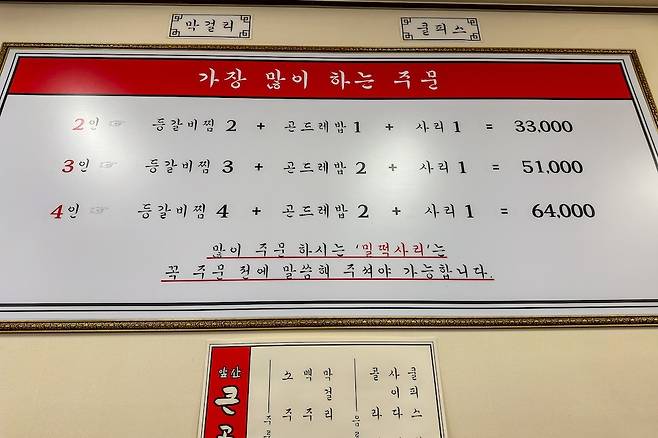 막걸리
쿨피스
가장 많이 하는 주문
2인 ☞ 등갈비찜 2 + 곤드레밥 1 + 사리 1 = 33,000
3인 ☞ 등갈비찜 3 + 곤드레밥 2 + 사리 1 = 51,000
4인 ☞ 등갈비찜 4 + 곤드레밥 2 + 사리 1 = 64,000
많이 주문 하시는 '밀떡사리'는
꼭 주문 전에 말씀해 주셔야 가능합니다.
쿨피스
사이다
콜라
막걸리
맥주
소주